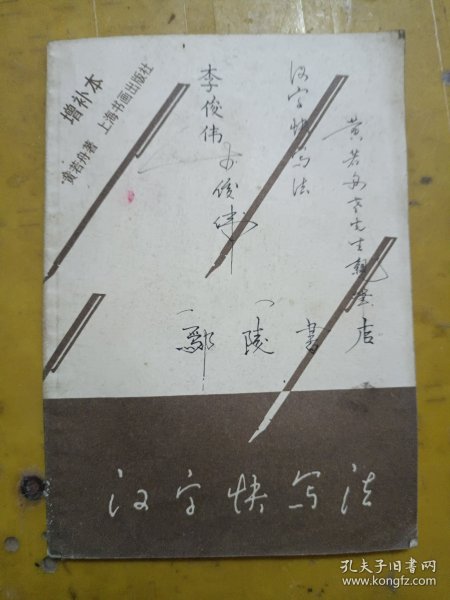 增补本
黄若舟著 上海书画出版社
李俊伟
李俊伟
汉字快写法
黄若舟老先生
鄢陵書店
汉字快写法
孔夫子旧书网
www.kongfz.com